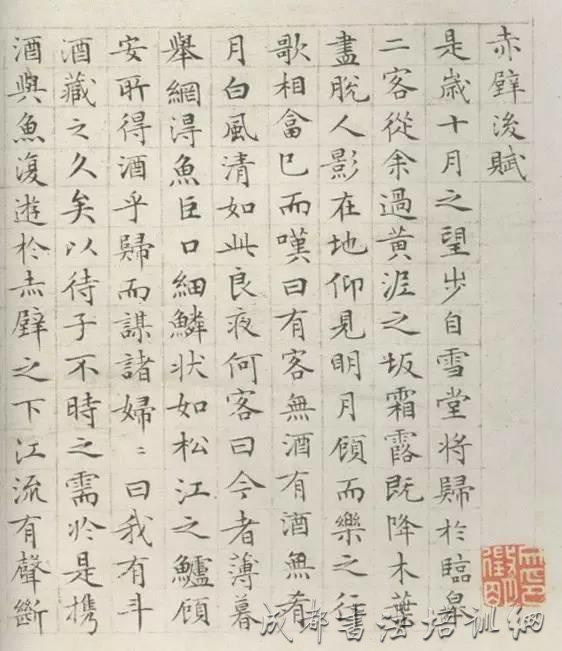 赤壁後賦
是歲十月之望步自雪堂將歸於臨皋
二客從余過黃泥之坂霜露既降木葉
盡脫人影在地仰見明月顧而樂之行
歌相畣已而嘆曰有客無酒有酒無肴
月白風清如此良夜何客曰今者薄暮
舉網得魚巨口細鱗狀如松江之鱸顧
安所得酒乎歸而謀諸婦〻曰我有斗
酒藏之久矣以待子不時之需於是攜
酒與魚復遊於赤壁之下江流有聲斷
成都書法培訓網